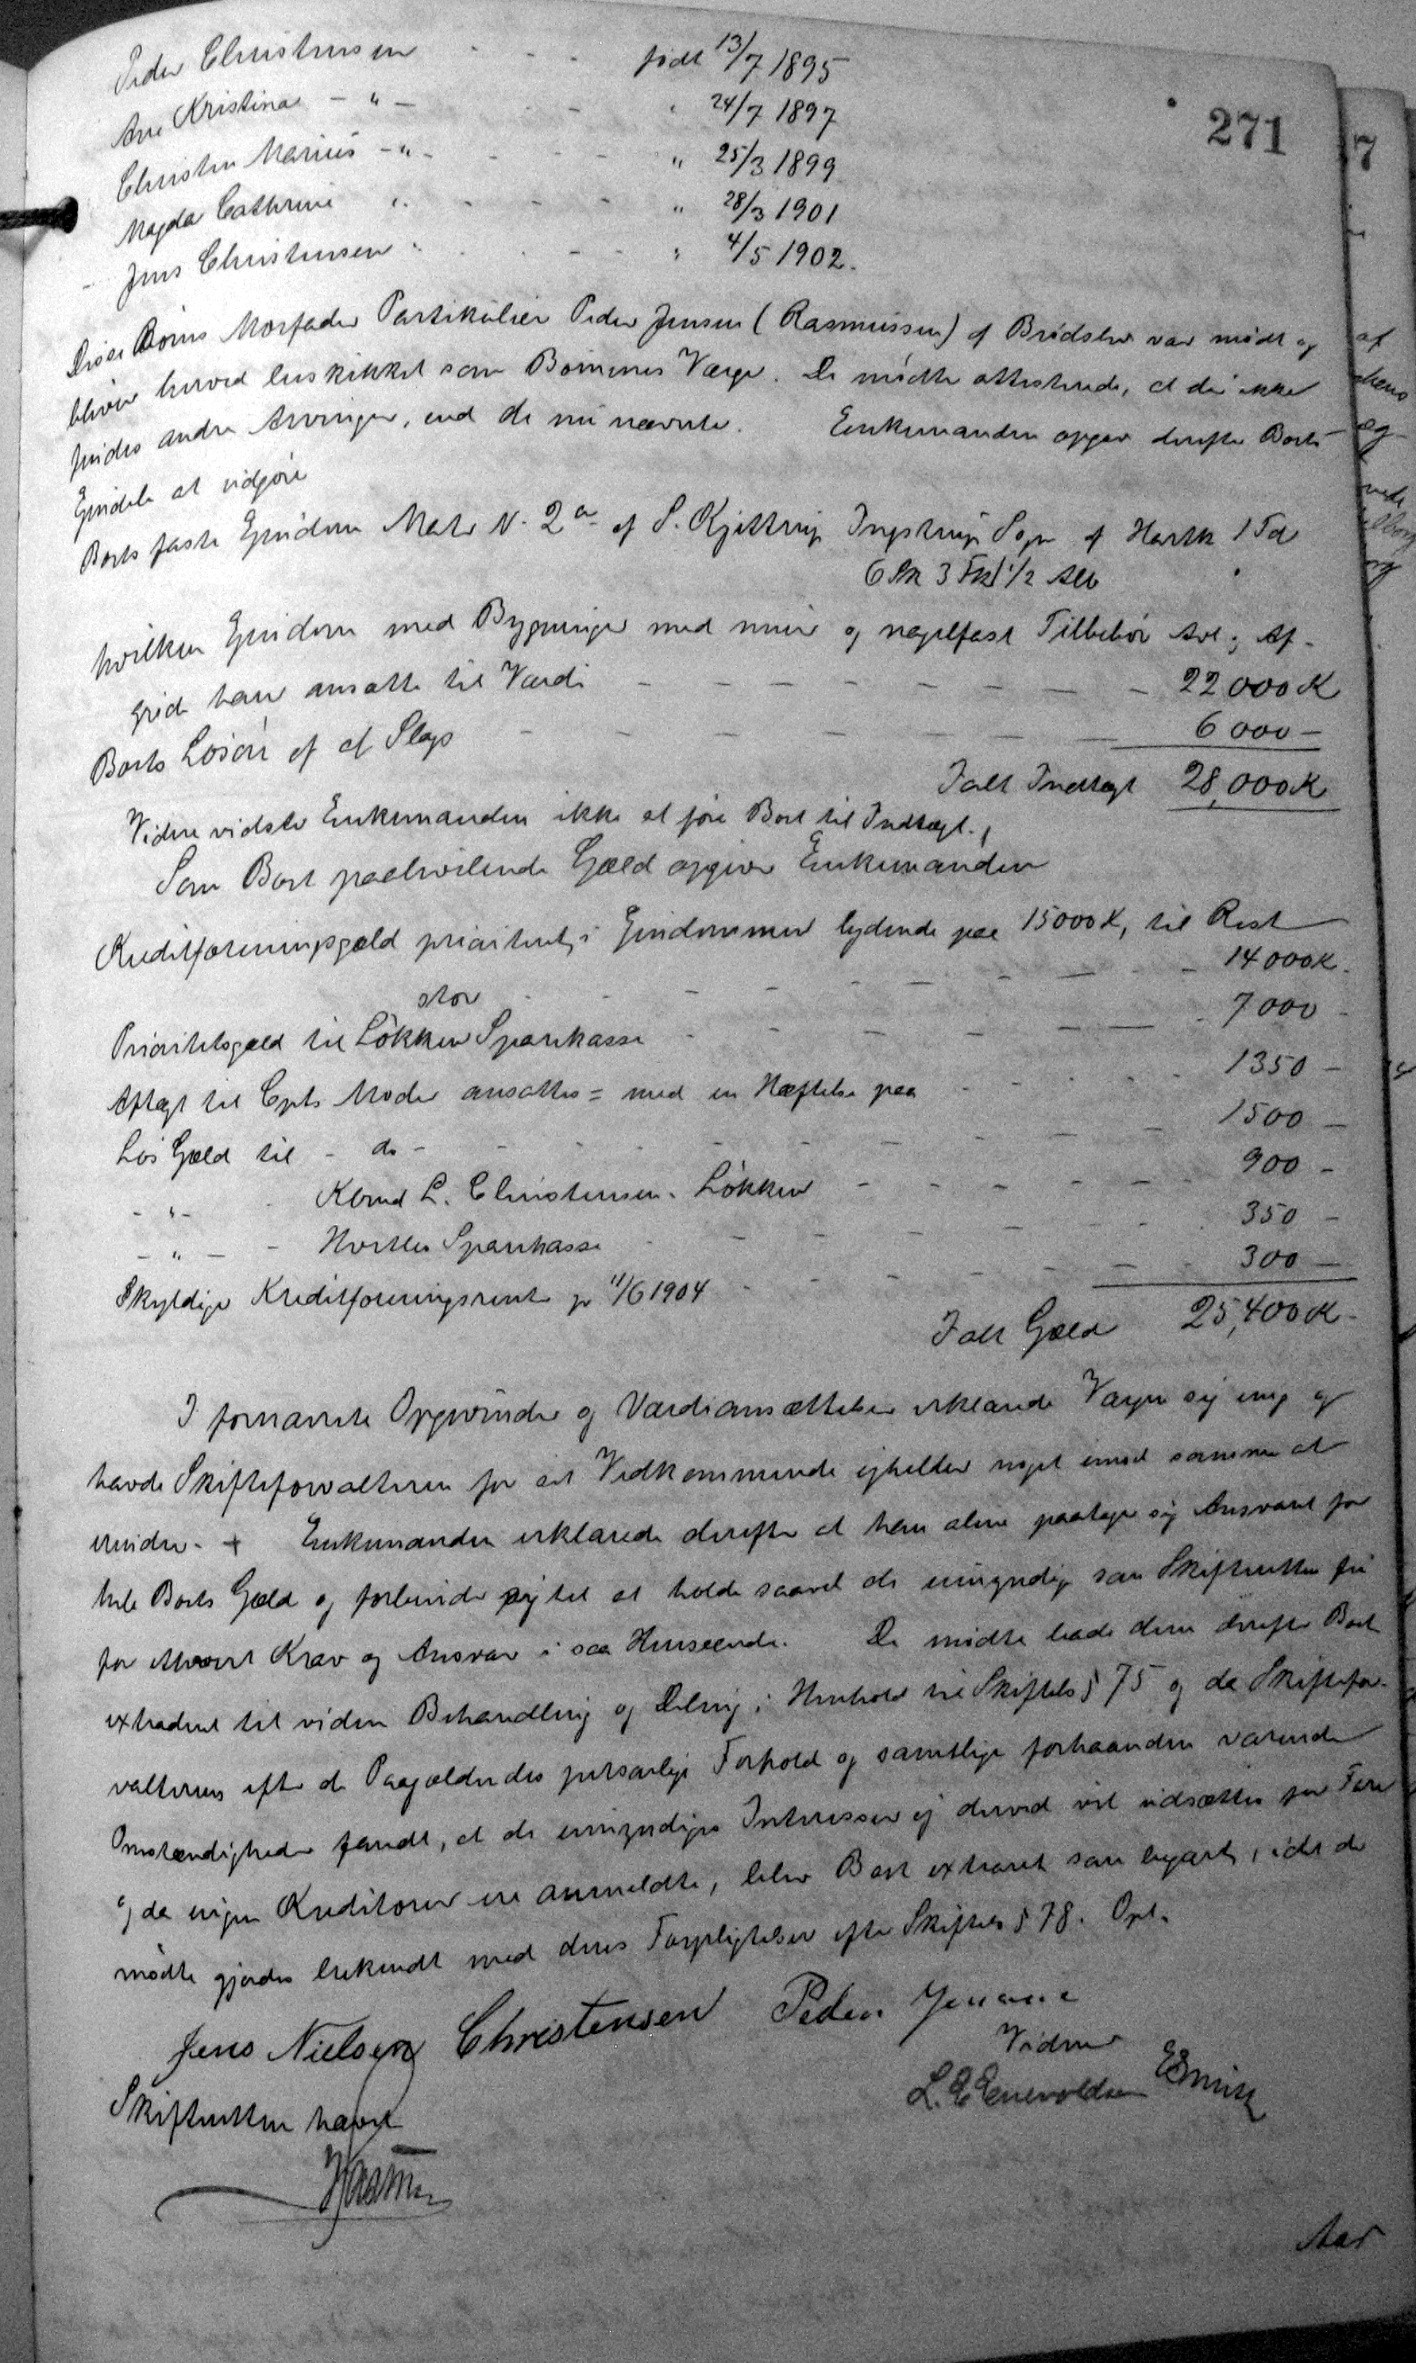 271
Peder Christensen - - - født 13/7 1895
Ane Kristine - " - - " 24/7 1897
Christen Marius - " - - - - " 25/3 1899
Magda Cathrine " - - - - " 28/3 1901
- Jens Christensen " - - - " 4/5 1902.
Disse Børns Morfader Partikulier Peder Jensen (Rasmussen) af Brødslev var mødt og
bliver herved beskikket som Børnenes Værge. De mødte attesterede, at der ikke
findes andre Arvinger, end de nu nævnte. Enkemanden opgav derefter Boets
Ejendele at udgjøre
Boets faste Ejendom Matr N. 2a af S. Kjettrup Ingstrup Sogn af Hartk 1 Td
6 Sk 3 Fk 1 1/2 Alb
hvilken Ejendom med Bygninger med muur og nagelfast Tilbehør Avl og Af-
grøde han ansatte til Værdi - - - - - - - - 22000 K
Boets Løsøre af al Slags - - - - - - - 6000 -
Ialt Indtægt 28,000 K
Videre vidste Enkemanden ikke at føre Boet til Indtægt.
Som Boet paahvilende Gæld opgiver Enkemanden
Kreditforeningsgæld prioriteret i Ejendommen lydende paa 15000 K, til Rest
- - - - - - 14000 K.
stor
Prioritetsgæld til Løkken Sparekasse - - - - - - 7000 -
Aftægt til Cpts Moder ansattes = med en Hæftelse paa - - - - 1350 -
Løs Gæld til - do - - - - - - - - - 1500 -
- " - - Kbmd L. Christensen. Løkken - - - - - - 900 -
- " - - Sparekasse - - - - - - - 350 -
Skyldige Kreditforeningsrente pr 11/6 1904 - - - - - - 300 -
Ialt Gæld 25,400 K -
I fornævnte Opgivende og Værdiansættelser erklærede Værgen sig enig og
havde Skifteforvalteren for sit Vedkommende ejheller noget imod samme at
erindre. + Enkemanden erklærede derefter at han alene paatager sig Ansvaret for
hele Boets Gæld og forbinder sig til at holde saavel de umyndige som Skifteretten fri
for ethvert Krav og Ansvar i saa Henseende. De mødte bade dem derefter Boet
extraderet til videre Behandling og Deling i Henhold til Skiftels § 75 og da Skiftefor-
valteren efter de Paagældendes personlige Forhold og samtlige forhaanden værende
Omstændigheder fandt, at de umyndiges Interesser ej derved vil udsættes for Fare
og da ingen Kreditorer ere anmeldte, blev Boet extraderet som begært, idet de
mødte gjordes bekendt med deres Forpligtelser efter Skiftels § 78. Opl.
Jens Nielsen Christensen Peder Jensen
Vidner
Skifteretten hævet L. E Enevoldsen
Aar